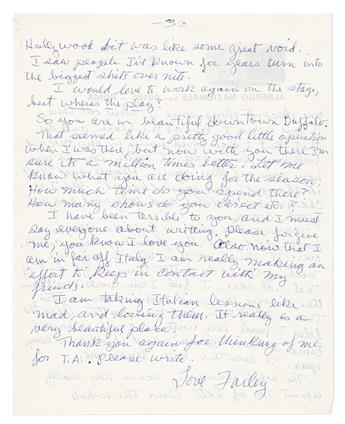 -3-
Hollywood bit was like some great void.
I saw people I've known for years turn into
the biggest shits over nite.
I would love to work again on the stage,
but wheres the play?
So you are in beautiful downtown Buffalo.
That seemed like a pretty good little operation
when I was there, but now with you there I'm
sure its a million times better. Let me
know what you are doing for the season.
How much time do you spend there?
How many shows do you direct etc.?
I have been terrible to you, and I must
say everyone about writting. Please forgive
me, you know I love you. Also now that I
am in far off Italy I am really making an
effort to keep in contact with my
friends.
I am taking Italian lessons like
mad and loving them. It really is a
very beautiful place.
Thank you again for thinking of me
for T.A. please write.
Love Farley